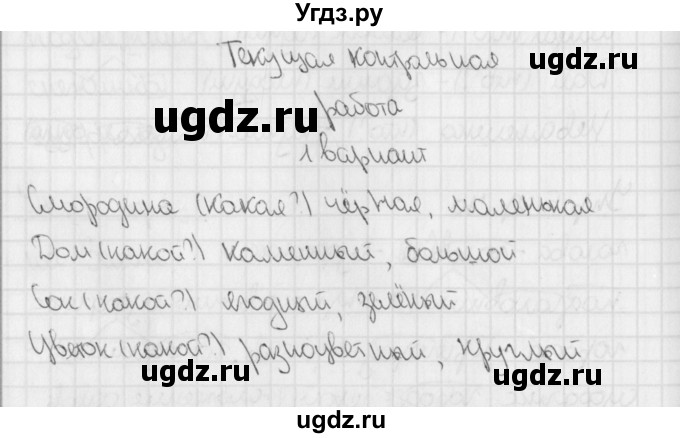 Угдз.ру
Текущая контрольная
ugdz.ru ugdz.ru
работа
ugdz.ru
1 вариант
Смородина (какая?) чёрная, маленькая
Дом (какой?) каменный, большой
Сок (какой?) ягодный, зелёный
Цветок (какой?) разноцветный, круглый
ugdz.ru ugdz.ru
ugdz.ru